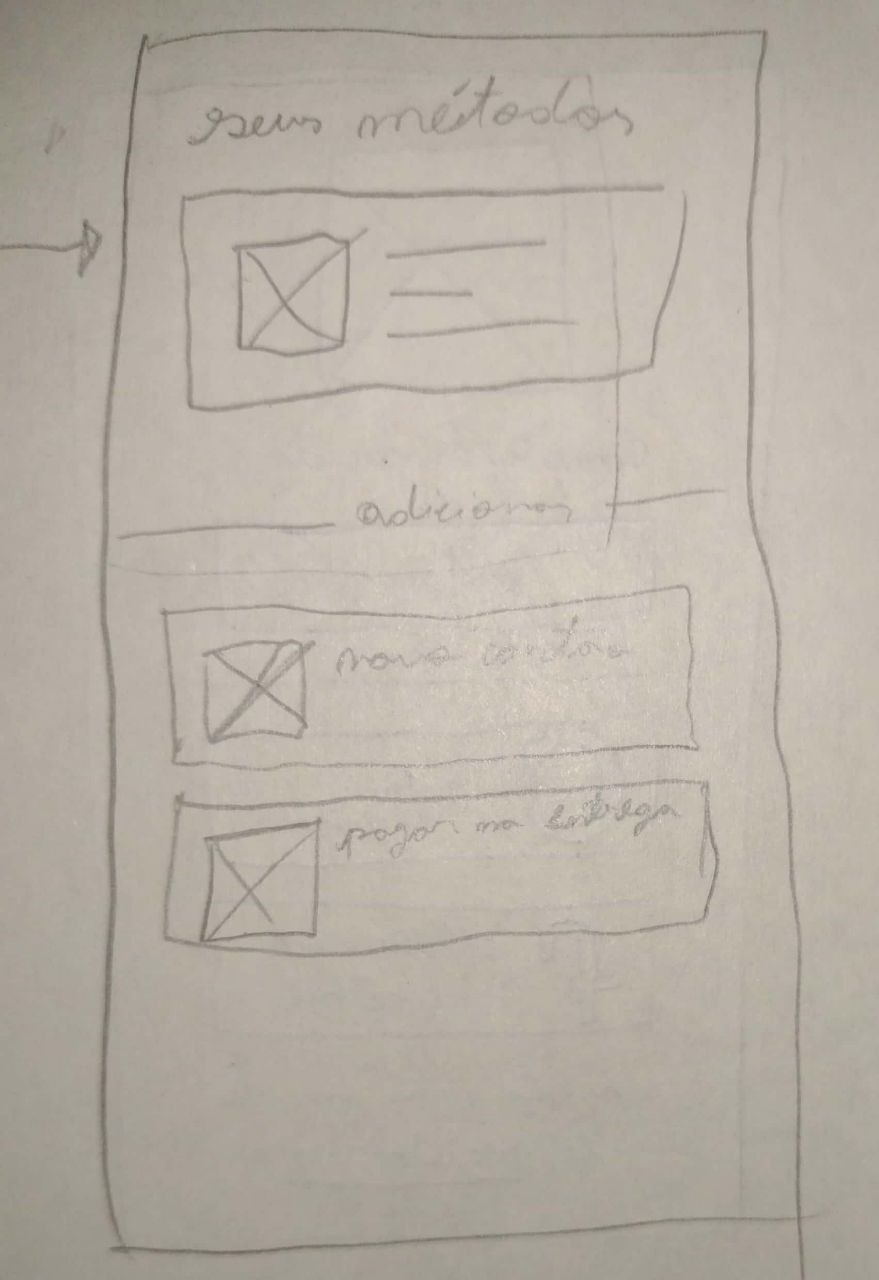 seus métodos
adicionar
novo cartão
pagar na entrega